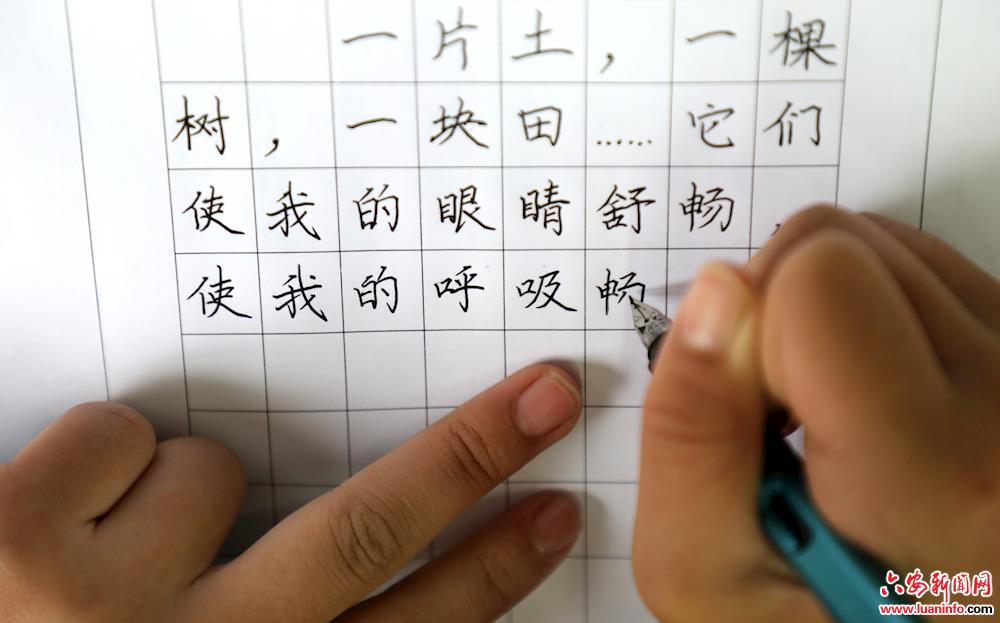 一片土，一棵
树，一块田……它们
使我的眼睛舒畅
使我的呼吸畅
六安新闻网
www.luaninfo.com